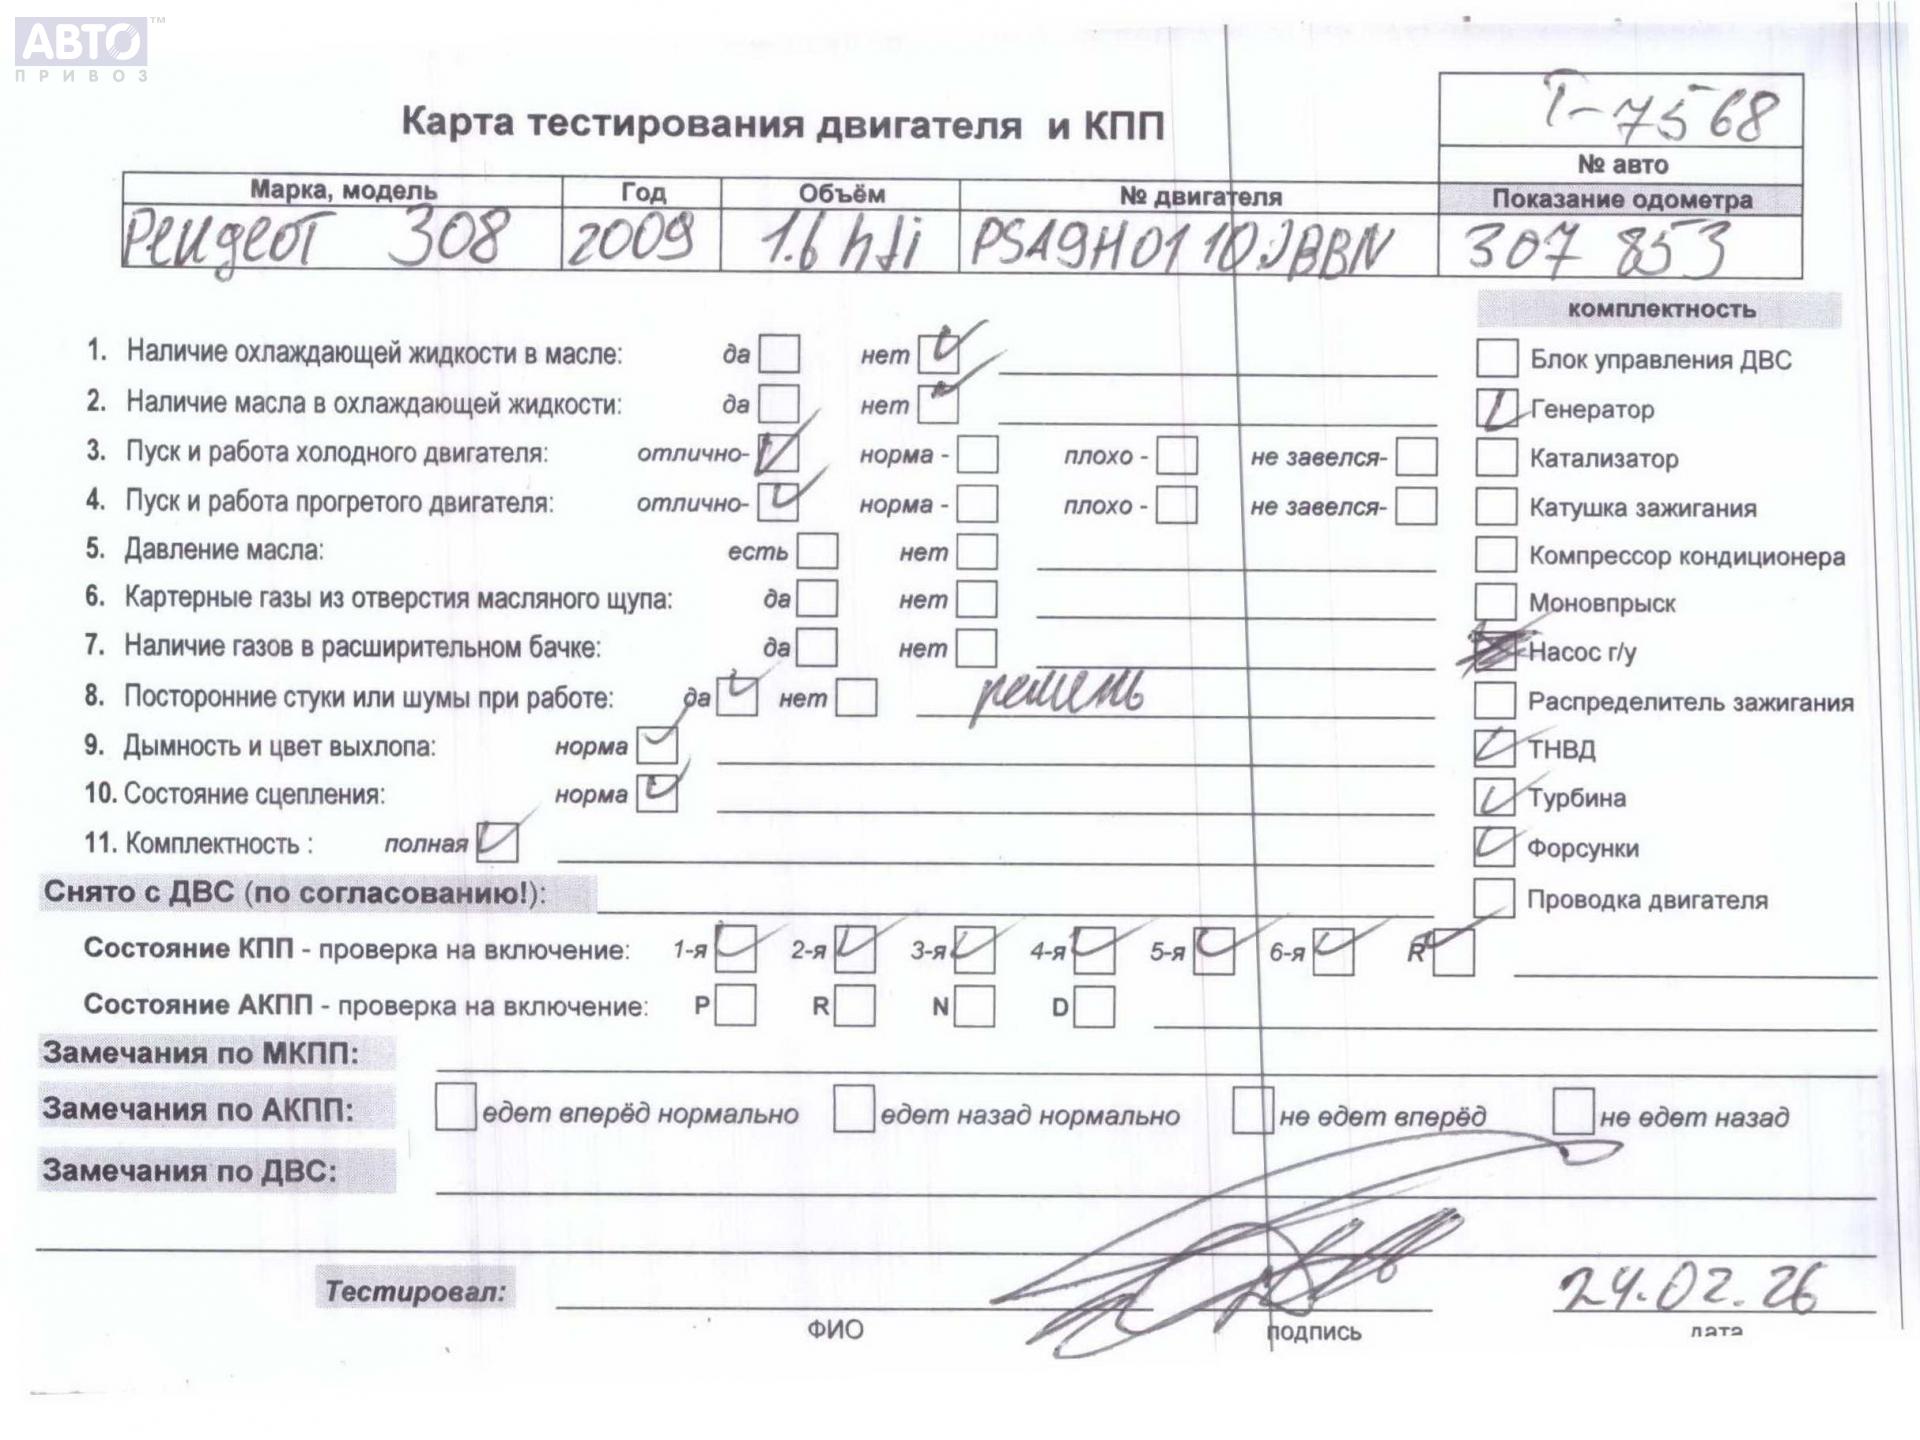 АВТО™
ПРИВОЗ
Т-7568
Карта тестирования двигателя и КПП
№ авто
Марка, модель Год Объём № двигателя Показание одометра
Peugeot 308 2009 1.6 hdi PSA9H01 10JBBN 307 853
комплектность
1. Наличие охлаждающей жидкости в масле: да нет
Блок управления ДВС
2. Наличие масла в охлаждающей жидкости: да нет
Генератор
3. Пуск и работа холодного двигателя: отлично- норма - плохо - не завелся-
Катализатор
4. Пуск и работа прогретого двигателя: отлично- норма - плохо - не завелся-
Катушка зажигания
5. Давление масла: есть нет
Компрессор кондиционера
6. Картерные газы из отверстия масляного щупа: да нет
Моновпрыск
7. Наличие газов в расширительном бачке: да нет
Насос г/у
8. Посторонние стуки или шумы при работе: да нет ремень
Распределитель зажигания
9. Дымность и цвет выхлопа: норма
ТНВД
10. Состояние сцепления: норма
Турбина
11. Комплектность : полная
Форсунки
Снято с ДВС (по согласованию!):
Проводка двигателя
Состояние КПП - проверка на включение: 1-я 2-я 3-я 4-я 5-я 6-я R
Состояние АКПП - проверка на включение: P R N D
Замечания по МКПП:
Замечания по АКПП: едет вперёд нормально едет назад нормально не едет вперёд не едет назад
Замечания по ДВС:
Тестировал: 24.02.26
ФИО подпись дата